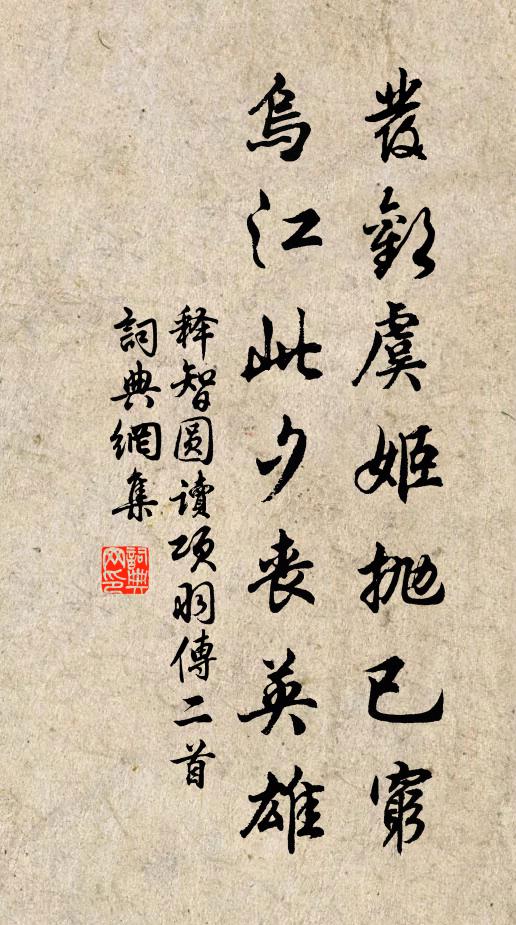 發虞姬拋已窮
烏江此夕喪英雄
释智圓讀項羽傳二首
詞典網集
詞典网印